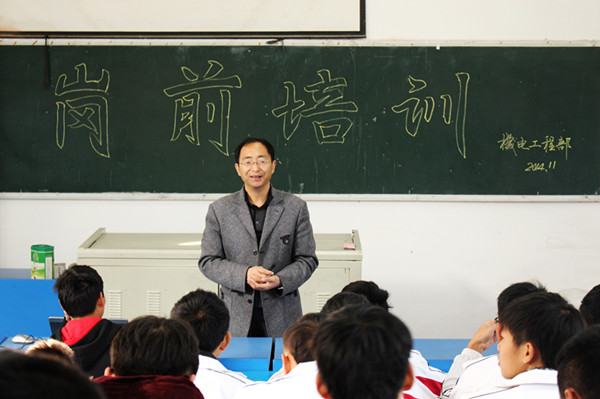 岗前培训
機电工程部
2014.11